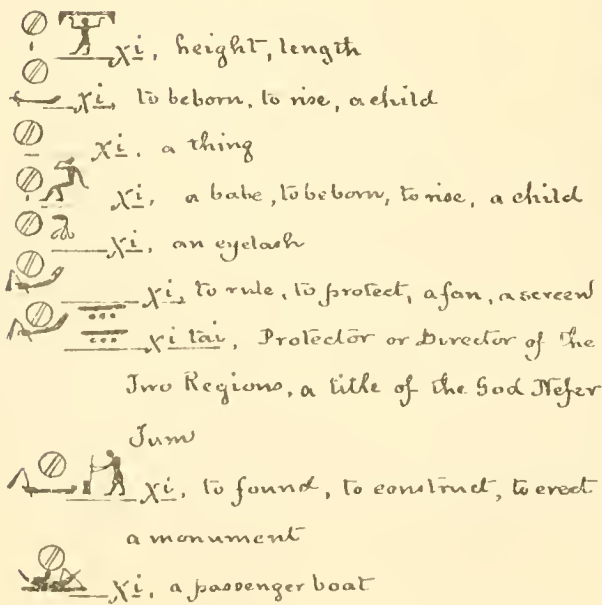 χi, height, length
χi, to be born, to rise, a child
χi. a thing
χi, a babe, to be born, to rise, a child
χi, an eyelash
χi, to rule, to protect, a fan, a screen
χi tai, Protector or Director of the
Two Regions, a title of the God Nefer
Tum
χi, to found, to construct, to erect
a monument
χi, a passenger boat